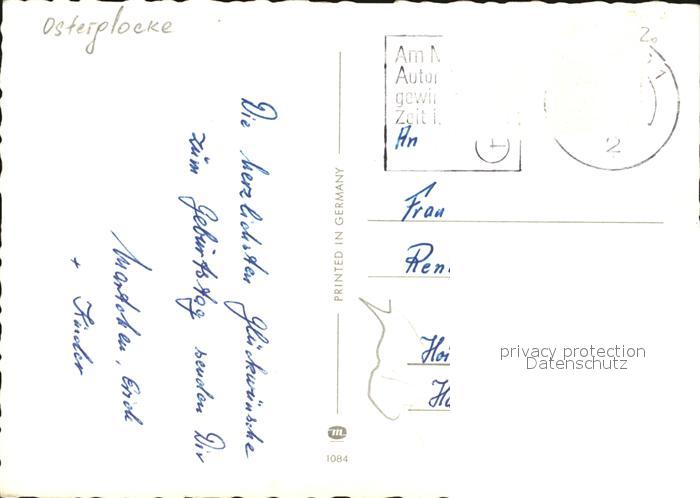 Osterglocke
Die herzlichsten Glückwünsche
zum Geburtstag senden Dir
Erich
+ Kinder
PRINTED IN GERMANY
m
1084
Am
Autor
gewin
Zeit
2
An
Frau
Ren
Hoi
privacy protection
Datenschutz